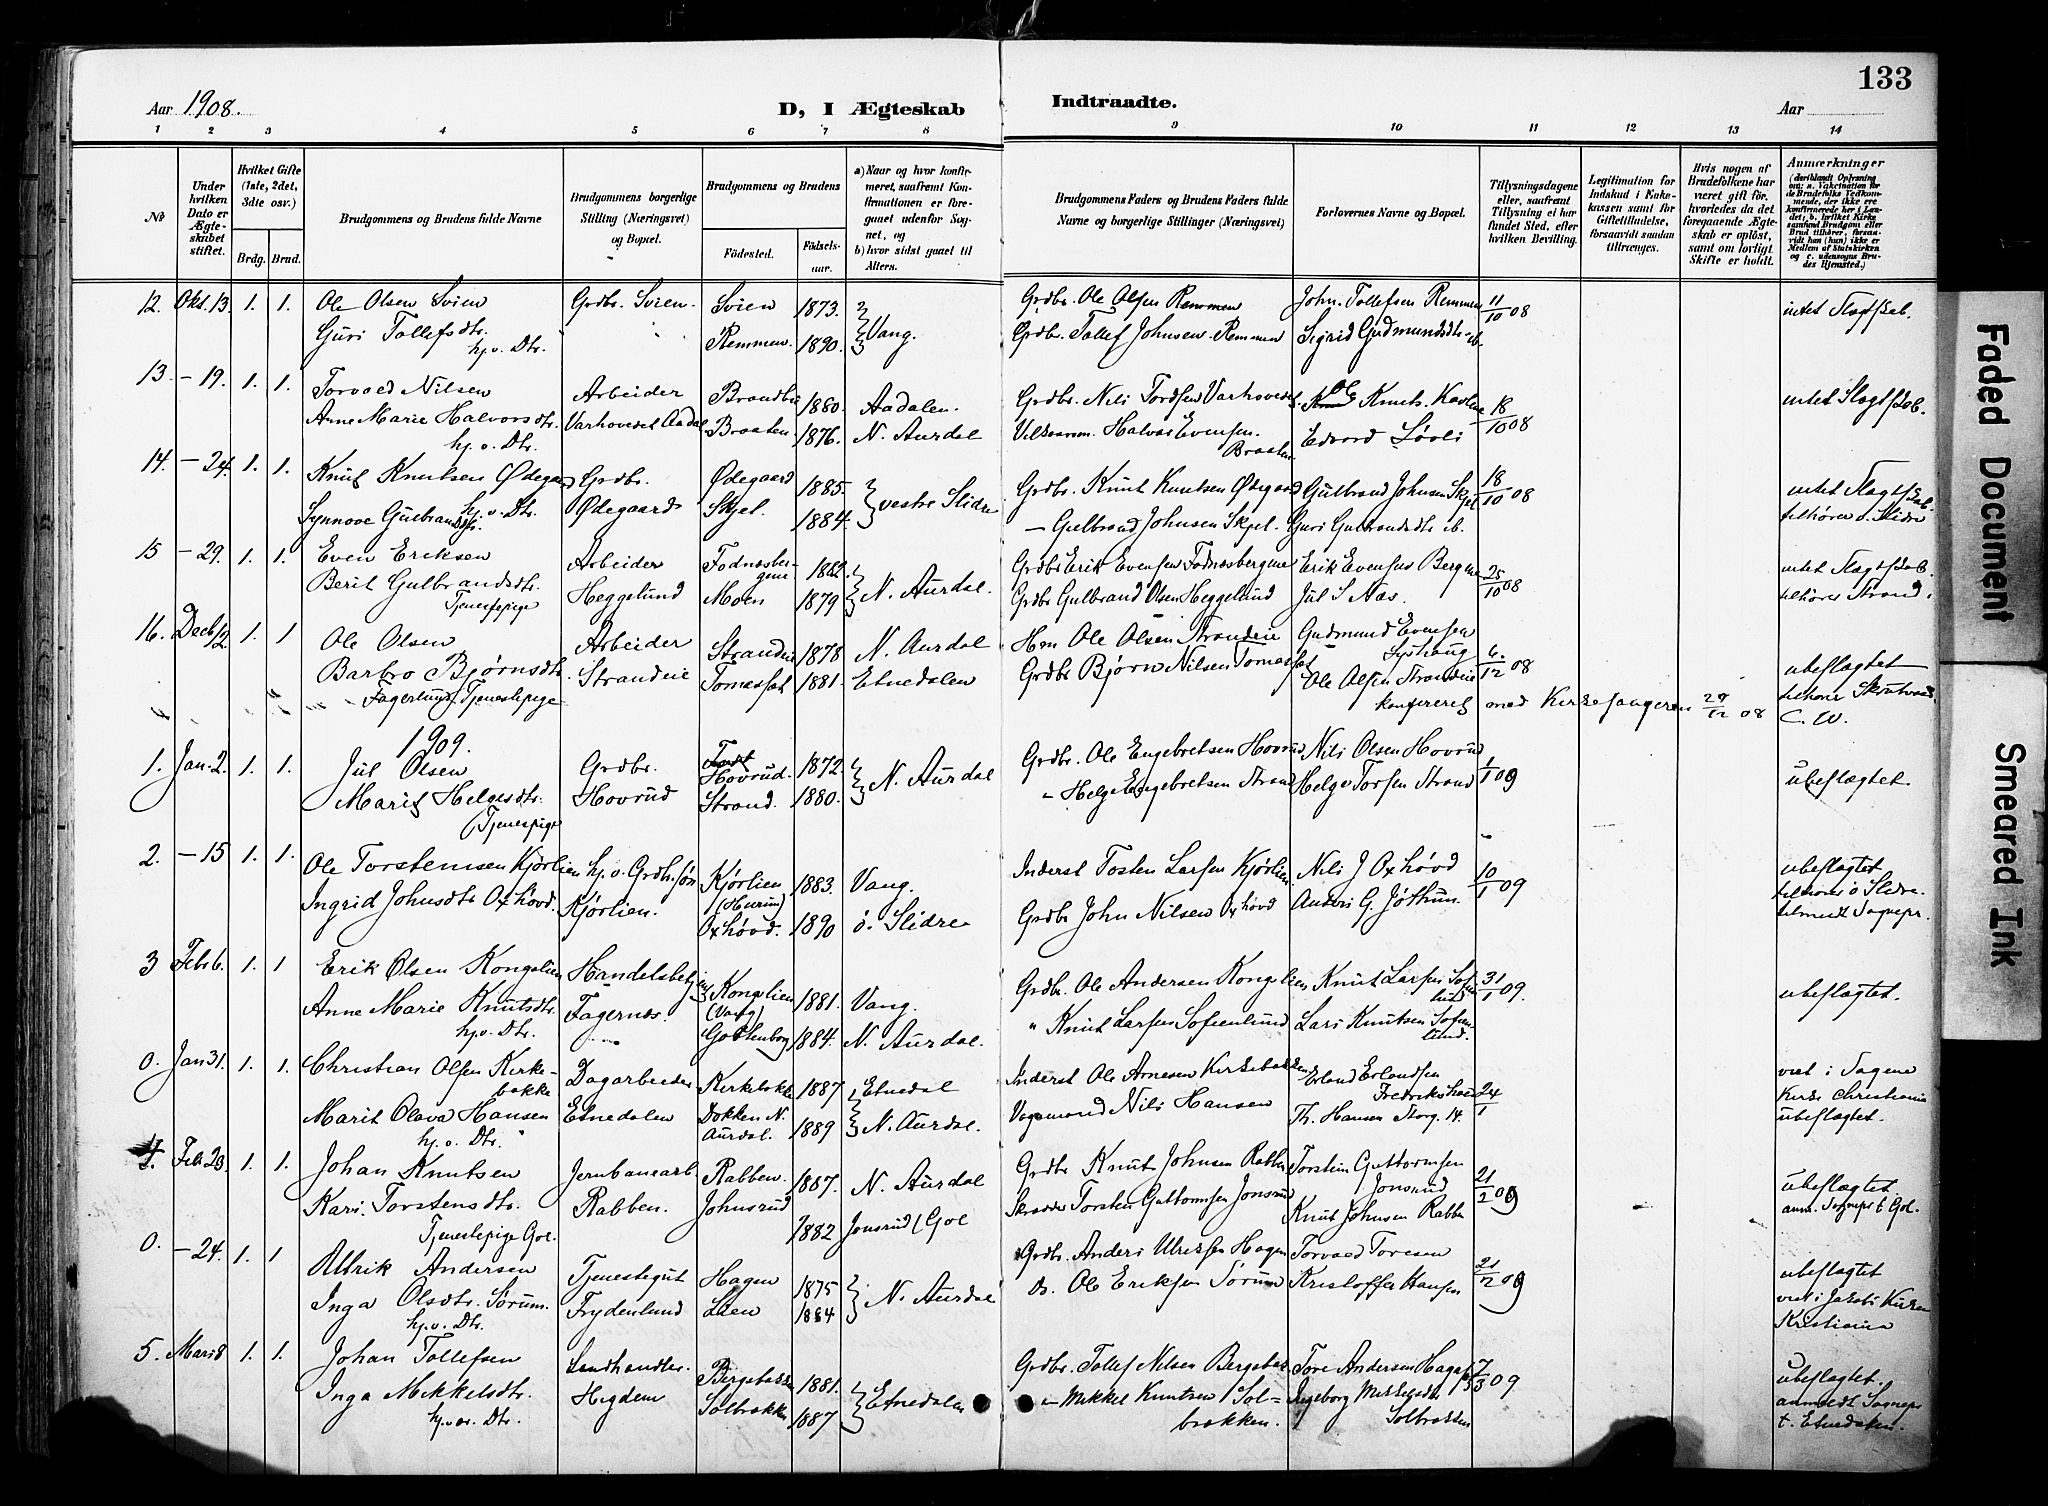 133
Aar 1908.
D, I Ægteskab Indtraadte.
Aar
1 2 3 4 5 6 7 8 9 10 11 12 13 14
No
Under hvilken Dato er Ægteskabet stiftet.
Hvilket Gifte (1ste, 2det, 3die osv.)
Brdg. Brud.
Brudgommens og Brudens fulde Navne
Brudgommens borgerlige Stilling (Næringsvei) og Bopæl.
Brudgommens og Brudens
Födested. Födselsaar.
a) Naar og hvor konfirmeret, saafremt Konfirmationen er foregaaet udenför Sognet, og
b) hvor sidst gaaet til Alters.
Brudgommens Faders og Brudens Faders fulde Navne og borgerlige Stillinger (Næringsvei)
Forlovernes Navne og Bopæl.
Tillysningsdagene eller, saafremt Tillysning ei har fundet Sted, efter hvilken Bevilling.
Legitimation for Indskud i Enkekassen samt for Giftetilladelse, forsaavidt saadan tiltrænges.
Hvis nogen af Brudefolkene har været gift för, hvorledes da det foregaaende Ægteskab er oplöst, samt om lovligt Skifte er holdt.
Anmærkninger
(deriblandt Oplysning om: a. Vakcination for de Brudefolks Vedkommende, der ikke ere konfirmerede her i Landet; b. hvilket Kirkesamfund Brudgom eller Brud tilhörer, forsaavidt han (hun) ikke er Medlem af Statskirken og c. udensogns Brudes Hjemsted.)
12. Okt. 13. 1. 1. Ole Olsen Svien Grdbr. Svien. Svien 1873. Vang. Grdbr. Ole Olsen Remmen John Tollefsen Remmen 11/10 08 intet Slægtskab.
Guri Tollefsdtr. hj.v. Dtr. Remmen. 1890. Grdbr. Tollef Johnsen Remmen Sigrid Gudmundsdtr. ib.
13. – 19. 1. 1. Torvald Nilsen Arbeider 1880. Aadalen. Grdbr. Nils Tordsen Ole Knuts. 18/10 08 intet Slægtskab.
Anne Marie Halvorsdtr. hj.v. Dtr. Varhovedet Aadal Braaten. 1876. N. Aurdal Halvor Evensen Braaten Edvard Løvli
14. – 24. 1. 1. Knut Knutsen Ødegaard Grdbr. Ødegaard 1885. vestre Slidre Grdbr. Knut Knutsen Ødegaard Gulbrand Johnsen Skjel 18/10 08 intet Slægtskab.
Synnøve Gulbrandsdtr. hj.v. Dtr. Ødegaard Skjel. 1884. – Gulbrand Johnsen Skjel. Guri Gulbrandsdtr. ib. tilhører v. Slidre
15 – 29. 1. 1. Even Eriksen Arbeider Fodnæsbergene 1882. N. Aurdal. Grdbr Erik Evensen Fodnæsbergene Erik Evensen Bergene 25/10 08 intet Slægtskab.
Berit Gulbrandsdtr. Tjenestepige Heggelund Moen 1879 Grdbr Gulbrand Olsen Heggelund Jul S. Næs. tilhører Strand.
16. Decb. 12. 1. 1 Ole Olsen Arbeider Strandeie 1878 N. Aurdal Hm Ole Olsen Strandeie Gudmund Evensen 6./12 08 ubeslægtet
Barbro Bjørnsdtr. Strandeie Tomasset 1881. Etnedalen Grdbr Bjørn Nilsen Tomasset Ole Olsen Strandeie tilhører
Fagerlund Tjenestepige konfereret med Kirkesangeren 29/12 08 C. W.
1909.
1. Jan. 2. 1. 1. Jul Olsen Grdbr. Hovrud. 1872. N. Aurdal Grdbr. Ole Engebretsen Hovrud Nils Olsen Hovrud 1/1 09 ubeslægtet
Marit Helgesdtr. (Tjenestepige Hovrud Strand. 1880. " Helge Engebretsen Strand Helge Torsen Strand
2. – 15 1. 1. Ole Torstensen Kjørlien hj.v. Grdbr.søn Kjørlien (Hurum) 1883. Vang. Inderst Tosten Larsen Kjørlien. Nils J Oxhøvd 10/1 09 ubeslægtet
Ingrid Johnsdtr Oxhøvd. Kjørlien. Oxhøvd. 1890 ö. Slidre Grdbr John Nilsen Oxhövd Anders G. Jøthun. tilhører ö Slidre. tilmeldt Sognepr.
3 Feb. 6. 1. 1 Erik Olsen Kongslien Handelsbetjent Kongslien (Vang) 1881. Vang. Grdbr. Ole Andersen Kongslien Knut Larsen Sofienlund 31/1 09. ubeslægtet.
Anne Marie Knutsdtr. hj.v. Dtr. Fagernæs. Gothenborg 1884. N. Aurdal. " Knut Larsen Sofienlund Lars Knutsen Sofienlund.
0. Jan 31. 1. 1. Christian Olsen Kirkebakke Dagarbeider Kirkebakke 1887 Etnedal Inderst Ole Arnesen Kirkebakken Erland Erlandsen 24/1 viet i Sagene
Marit Olava Hansen hj.v. Dtr. Etnedalen Dokken N. Aurdal. 1889 N. Aurdal. Nils Hansen Th. Hansen Storg. 14. Kirke Christiania ubeslægtet.
4. Feb. 23. 1. 1. Johan Knutsen Jernbanearb. Rabben. 1887. N. Aurdal Grdbr Knut Johnsen Rabben Torstein Guttormsen Jonsrud 21/2 09 ubeslægtet
Kari Torstensdtr. Tjenestepige Gol. Rabben. Johnsrud 1882 Jonsrud / Gol Skrædder Torsten Guttormsen Jonsrud Knut Johnsen Rabben anm. Sognepr t Gol.
0. – 24. 1. 1 Ulrik Andersen Tjenestegut Hagen 1875 N. Aurdal Grdbr. Anders Ulriksen Hagen Torvald Toresen 21/2 09 ubeslægtet
Inga Olsdtr. Sørum. hj.v. Dtr. Frydenlund Lien 1884 Do. Ole Eriksen Sørum Kristoffer Hansen viet i Jakobs Kirke Kristiania
5. Mars 8 1. 1. Johan Tollefsen Landhandler. Bergebakke 1881. Etnedalen Grdbr. Tollef Nilsen Bergebak Tore Andersen Hagaf 7/3 09 ubeslægtet.
Inga Mikkelsdtr. hj.v. Dtr. Hegdem Solbrækken 1887 – Mikkel Knutsen Solbrækken. Ingeborg Mikkelsdtr Solbrækken anmeldt Sognepr t. Etnedalen.
Faded Document
Smeared Ink